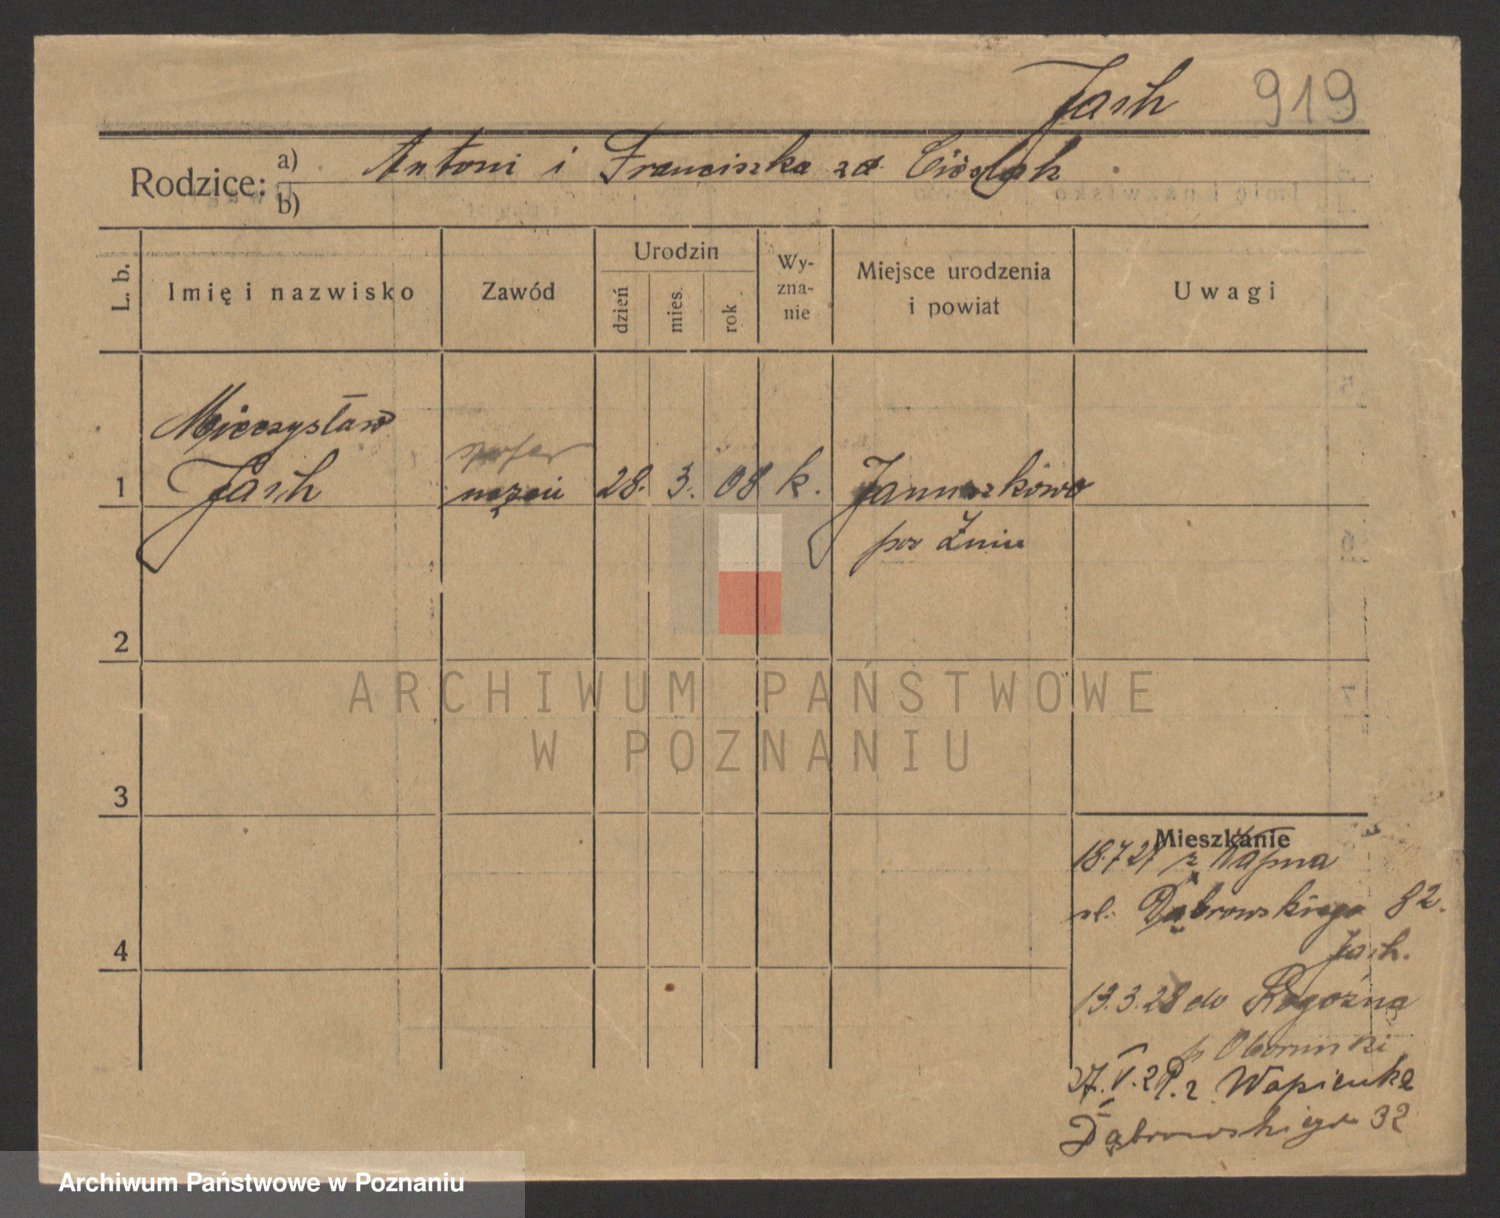 Jash 919
Rodzice: a) Antoni i Franciszka zd Cieślak
b)
L. b.
Imię i nazwisko
Zawód
Urodzin
dzień
mies.
rok
Wy-
zna-
nie
Miejsce urodzenia
i powiat
Uwagi
Mieczysław
szofer
1 Jash uczeń 28. 3. 08 k. Januszkowo
pow Żnin
2
3
4
Mieszkanie
18.7.27 z Kcynia
ul. Dąbrowskiego 82.
Jash.
19.3.28 do Rogoźna
p Obornicki
27.V.29. z Wapienka
Dąbrowskiego 32
ARCHIWUM PAŃSTWOWE
W POZNANIU
Archiwum Państwowe w Poznaniu